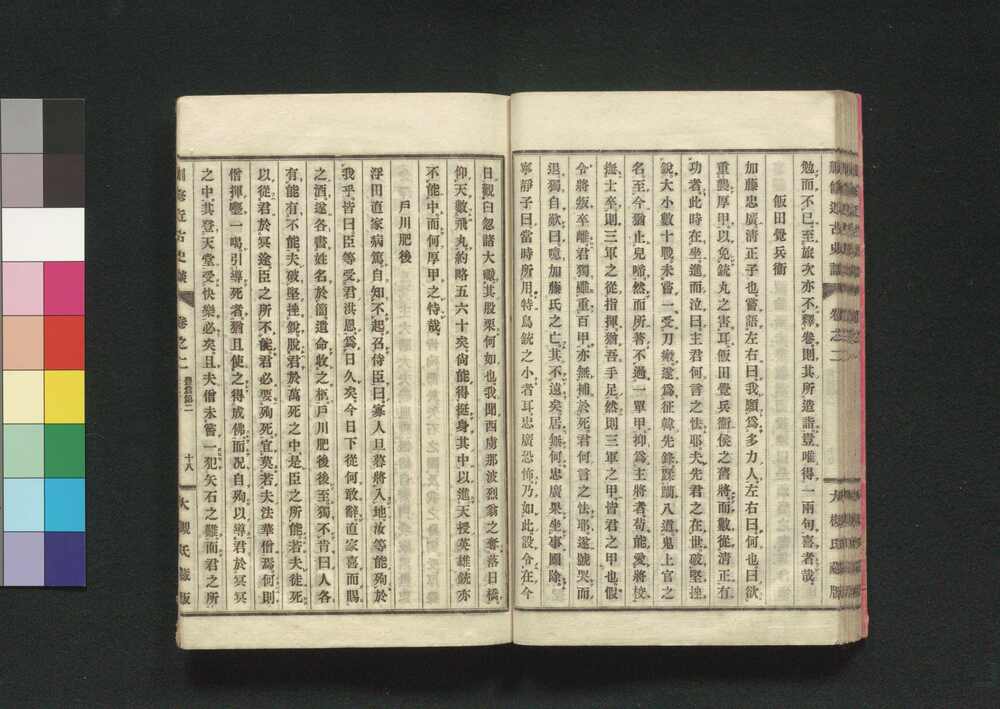 勉而不已至旅次亦不釋卷則其所造詣豈唯得一兩句喜者哉
飯田覺兵衞
加藤忠廣清正子也嘗語左右曰我願爲多力人左右曰何也曰欲
重襲厚甲以免銃丸之害耳飯田覺兵衞侯之舊將而數從清正有
功者此時在坐進而泣曰主君何言之怯耶夫先君之在世破堅挫
銳大小數十戰未嘗一受刀瘢遂爲征韓先鋒蹂躙八道鬼上官之
名至今猶止兒啼然而所著不過一單甲抑爲主將者苟能愛將校
撫士卒則三軍之從指揮猶吾手足然則三軍之甲皆君之甲也假
令將叛卒離君獨雖重百甲亦無補於死君何言之怯耶遂號哭而
退獨自歎曰噫加藤氏之亡其不遠矣居無何忠廣果坐事國除
寧靜子曰當時所用特鳥銃之小者耳忠廣恐怖乃如此設令在今
日觀臼忽諸大礮其股栗何如也我聞西虜那波烈翁之奪落日橋
仰天數飛丸約略五六十矣尙能得挺身其中以進天授英雄銃亦
不能中而何厚甲之恃哉
戶川肥後
浮田直家病篤自知不起召侍臣曰寡人旦暮將入地汝等能殉於
我乎皆曰臣等受君洪恩爲日久矣今日下從何敢辭直家喜而賜
之酒遂各書姓名於簡遺命收之柩戶川肥後後至獨不肯曰人各
有能有不能夫破堅挫銳脫君於萬死之中是臣之所能若夫徒死
以從君於冥途臣之所不能君必要殉死宜莫若夫法華僧焉何則
僧揮麈一喝引導死者猶且使之得成佛而況自殉以導君於冥冥
之中其登天堂受快樂必矣且夫僧未嘗一犯矢石之難而君之所
近古史談 卷之二 豊篇第二 十八 大槻氏藏版